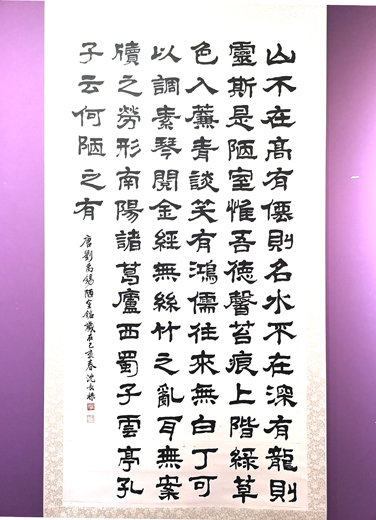 山不在高有僊則名水不在深有龍則
靈斯是陋室惟吾德馨苔痕上階綠草
色入簾青談笑有鴻儒往來無白丁可
以調素琴閱金經無絲竹之亂耳無案
牘之勞形南陽諸葛廬西蜀子雲亭孔
子云何陋之有
唐劉禹錫陋室銘歲在己亥春沈